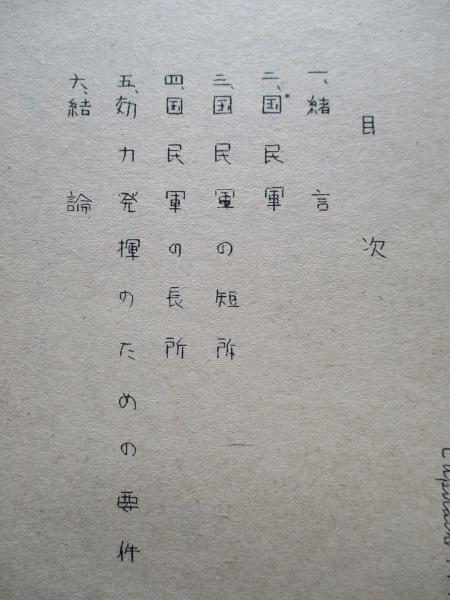 目次
一、緒言
二、国民軍
三、国民軍の短所
四、国民軍の長所
五、効力発揮のための要件
六、結論